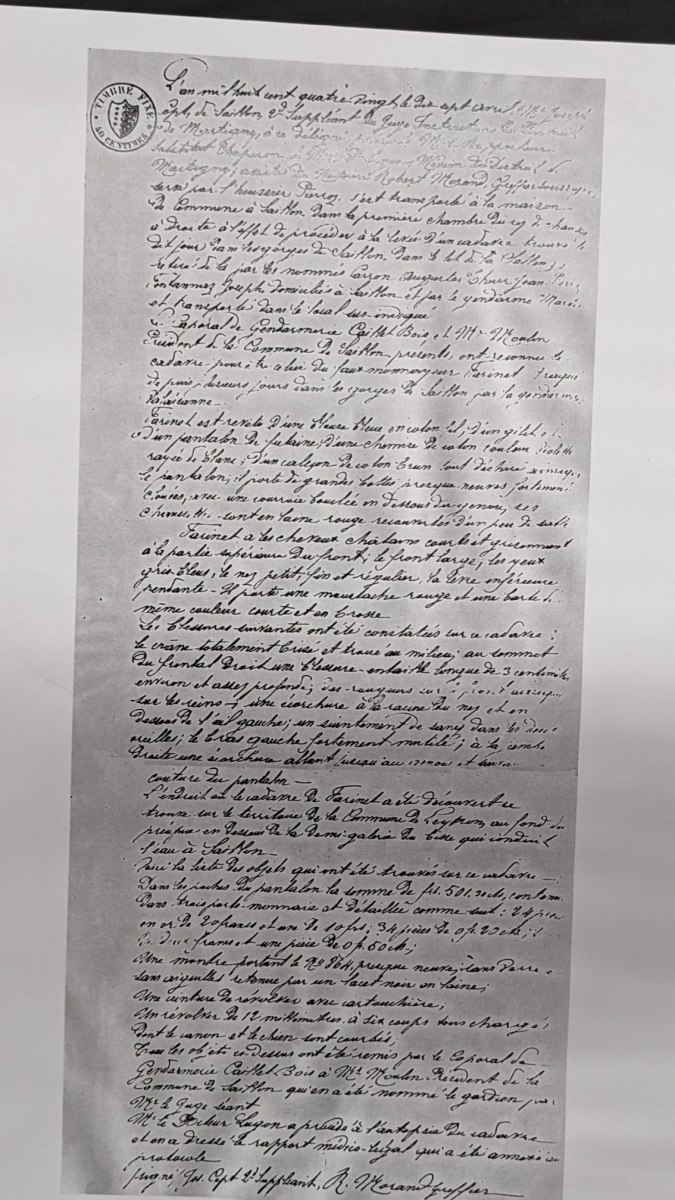 TIMBRE FIXE
40 CENTIMES
L'an mil huit cent quatre vingt le dix sept avril Mr Joseph
Cept, de Saillon, 2d Suppléant du Juge Instructeur du District
de Martigny, à ce délégué, Mr le Rapporteur
Substitut Chaperon, Médecin du District de
Martigny, assisté du Notaire Robert Morand, Greffier soussigné,
servi par l'huissier Pierroz, s'est transporté à la maison
de Commune à Saillon dans la première chambre du rez de chaussée
à droite à l'effet de procéder à la levée d'un cadavre trouvé le
dit jour dans les gorges de Saillon, dans le lit de la
retiré de là par les nommés Carron Augustes Thurre Jean
Fontannaz Joseph domiciliés à Saillon et par le gendarme
et transporté dans le local sus-indiqué
Le Caporal de Gendarmerie Caillet Bois, et Mr Moulin
Président de la Commune de Saillon présents, ont reconnu le
cadavre pour être celui du faux monnayeur Farinet traqué
depuis plusieurs jours dans les gorges de Saillon par la gendarmerie
Valaisanne
Farinet est revêtu d'une blouse bleue en coton fil, d'un gilet et
d'un pantalon de futaine, d'une chemise de coton couleur violette
rayée de blanc; d'un caleçon de coton brun tout déchiré ainsi que
le pantalon; il porte de grandes bottes presque neuves fortement
clouées, avec une courroie bouclée en dessous du genou, ses
chaussettes sont en laine rouge recouvertes d'un peu de
Farinet a les cheveux châtains courts et grisonnant
à la partie supérieure du front; le front large, les yeux
gris bleus, le nez petit, fin et régulier, la lèvre inférieure
pendante. Il porte une moustache rouge et une barbe de
même couleur courte et en brosse
Les blessures suivantes ont été constatées sur ce cadavre:
le crâne totalement brisé et troué au milieu; au sommet
du frontal droit une blessure-entaille longue de 3 centimètres
environ et assez profonde; des rougeurs sur
sur les reins; une écorchure à la racine du nez et en
dessous de l'œil gauche; un suintement de sang dans les deux
oreilles; le bras gauche fortement mutilé; à la jambe
droite une écorchure allant jusqu'au genou et
couture du pantalon —
L'endroit où le cadavre de Farinet a été découvert se
trouve sur le territoire de la Commune de Leytron, au fond du
précipice en dessous de la demi-galerie du bisse qui conduit
l'eau à Saillon
Voici la liste des objets qui ont été trouvés sur ce cadavre —
Dans les poches du pantalon la somme de frs. 501.20 cts, contenu
dans trois porte-monnaie et détaillée comme suit: 24 pièces
en or de 20 francs et une de 10 frs; 34 pièces de 0 f. 20 cts;
de deux francs et une pièce de 0 f. 50 cts;
Une montre portant le No 864, presque neuve, sans verre et
sans aiguilles retenue par un lacet noir en laine;
Une ceinture de revolver avec cartouchière;
Un revolver de 12 millimètres à six coups tous chargés
dont le canon et le chien sont courbés;
Tous les objets ci-dessus ont été remis par le Caporal de
Gendarmerie Caillet Bois à Mr Moulin Président de la
Commune de Saillon qui en a été nommé le gardien par
Mr le Juge séant
Mr le Docteur Lugon a procédé à l'autopsie du cadavre
et en a dressé le rapport médico-légal qui a été annexé au
protocole
signé Jos. Cept 2d Suppléant, R. Morand greffier